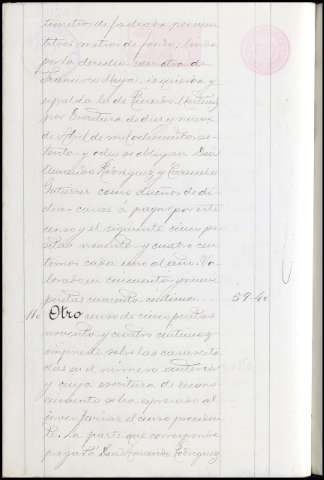 metros de fachada por
metros de fondo; linda
por la derecha con otra de
Francisco Moya, izquierda y
espalda la de Ricardo
por Escritura de diez y nueve
de Abril de mil ochocientos se-
tenta y ocho se obligan Don
Rodriguez y Consuelo
Gutierrez como dueños de di-
chas casas á pagar por este
censo y el siguiente cinco pe-
setas noventa y cuatro cen-
timos cada uno al año. Va-
lorado en cincuenta y nueve
pesetas cuarenta centimos. 59.40
11o Otro censo de cinco pesetas
noventa y cuatro centimos
impuesto sobre las casas cita-
das en el número anterior
y cuya escritura de recono-
cimiento se ha espresado al
inventariar el censo preceden-
te. La parte que corresponde
pagar á Don Rodriguez